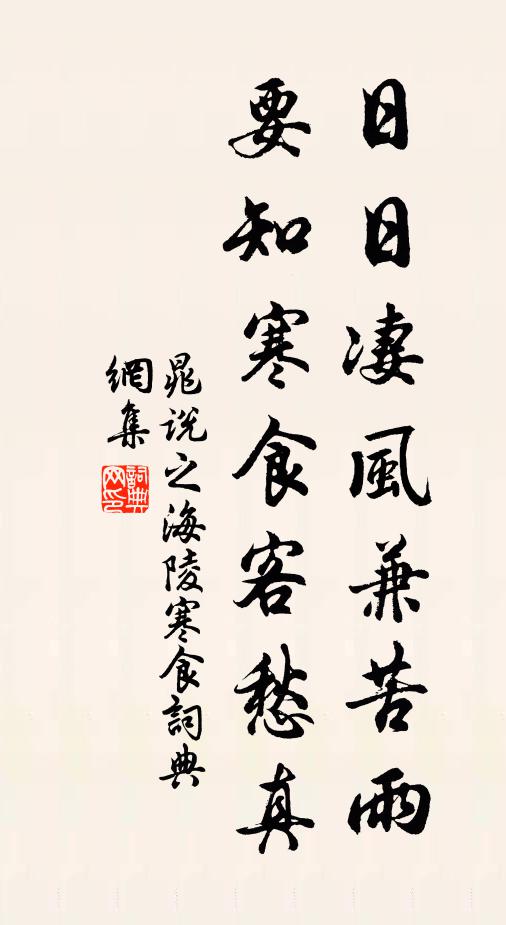 日日凄風兼苦雨
要知寒食客愁真
晁説之海陵寒食詞典
網集
詞典
网印